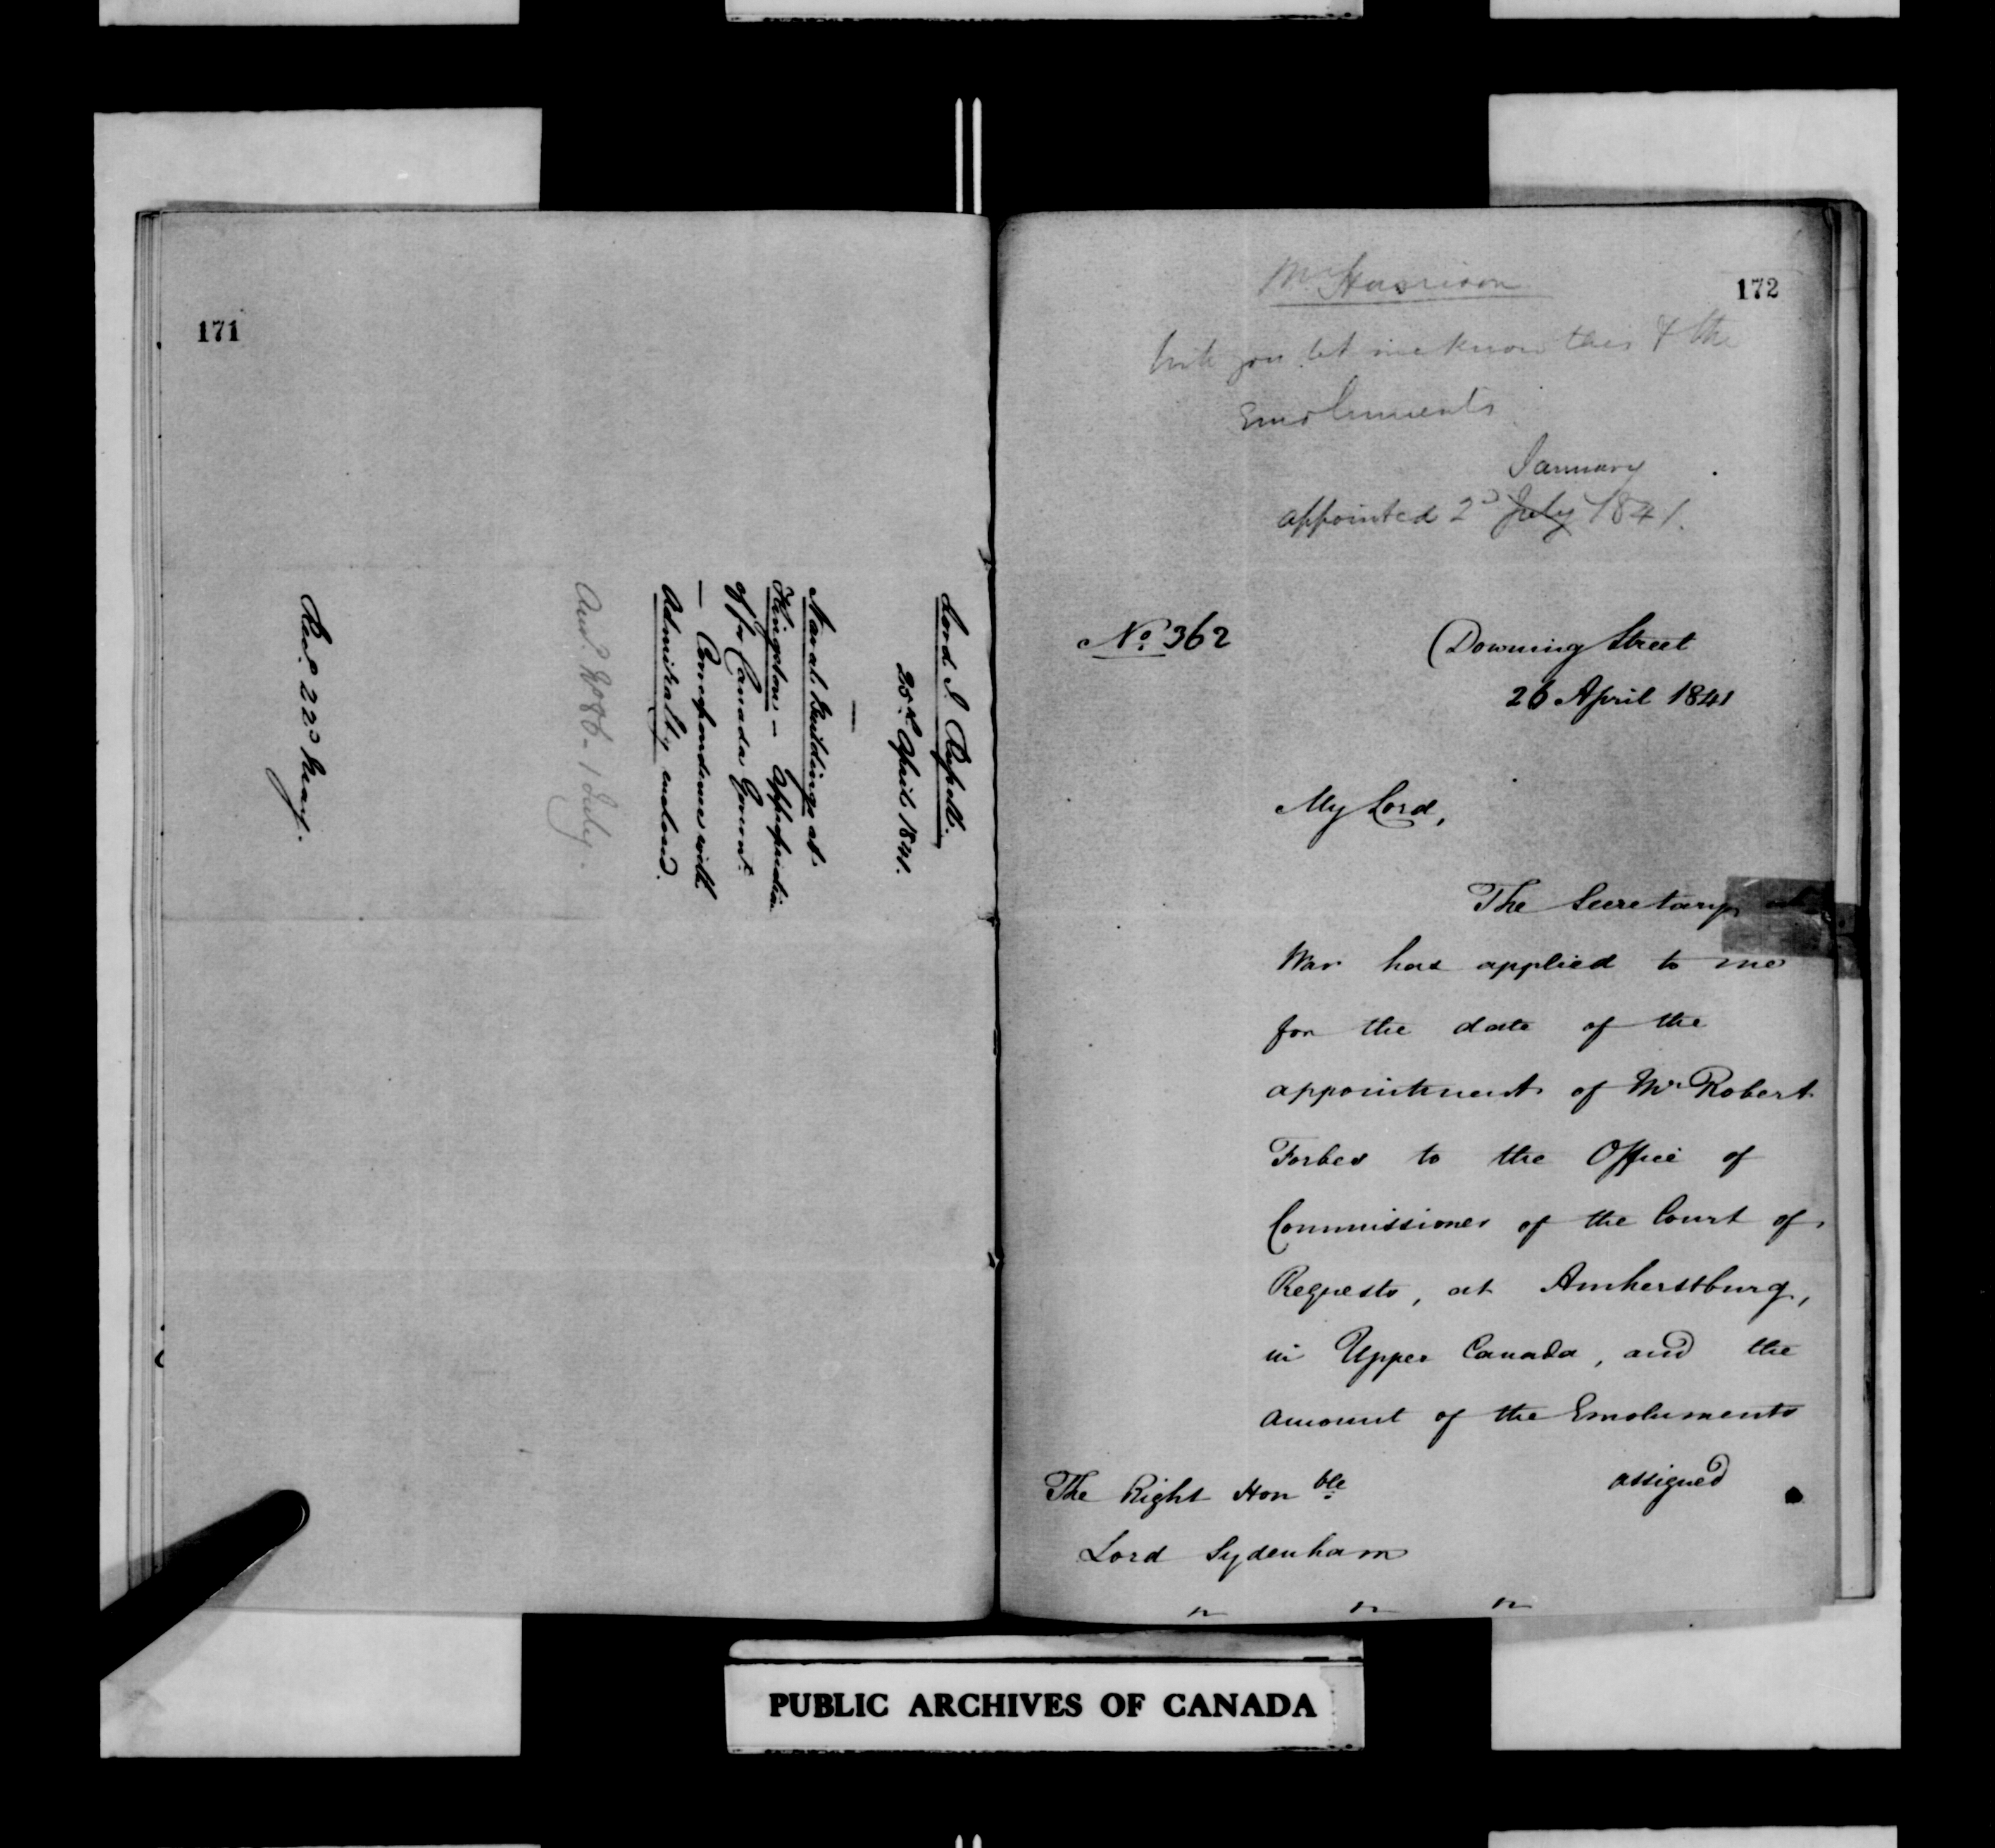 171
Lord J. Russell.
25th April 1841.
Naval Buildings at
Kingston – Appropriation
of for Canada Govermt.
— Correspondence with
Admiralty enclosed.
Ansd. No 86 - 1 July.
Recd. 22d May.
172
Mr Harrison
Will you let me know this & the
Emoluments
January
appointed 2d July 1841.
No. 362
Downing Street
26 April 1841
My Lord,
The Secretary at
War has applied to me
for the date of the
appointment of Mr Robert
Forbes to the Office of
Commissioner of the Court of
Requests, at Amherstburg,
in Upper Canada, and the
amount of the Emoluments
assigned
The Right Honble
Lord Sydenham
PUBLIC ARCHIVES OF CANADA